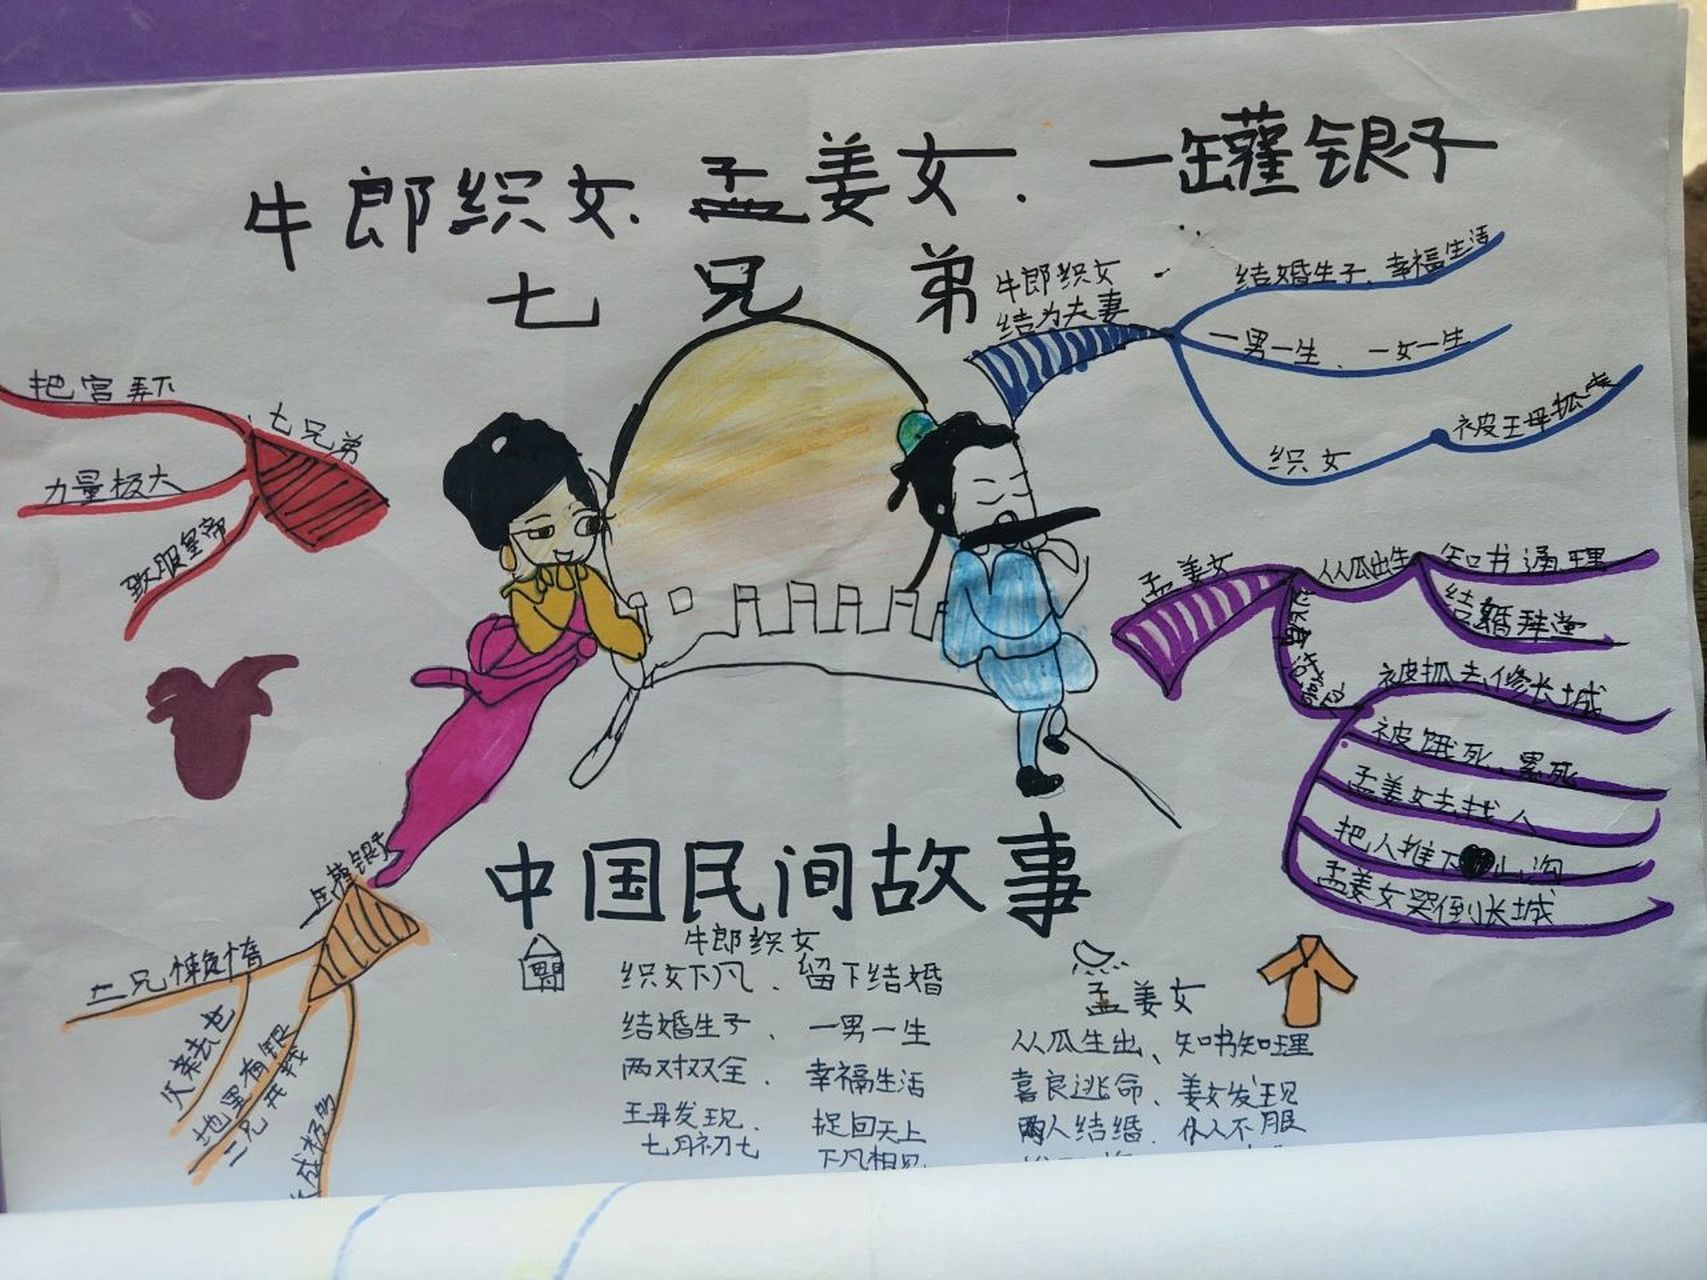 牛郎织女、孟姜女、一罐银子
七兄弟
牛郎织女
结为夫妻
结婚生子、幸福生活
一男一生、一女一生
织女
被王母抓走
七兄弟
把宫弄下
力量极大
致服皇帝
孟姜女
从瓜出生
知书通理
结婚拜堂
被抓去修长城
被饿死、累死
孟姜女去找人
把人推下山沟
孟姜女哭倒长城
一罐银子
二兄懒惰
父亲去也
地里有银
二兄去找
收成极多
中国民间故事
牛郎织女
织女下凡、留下结婚
结婚生子、一男一生
两对双全、幸福生活
王母发现、捉回天上
七月初七 下凡相见
孟姜女
从瓜生出、知书知理
喜良逃命、姜女发现
两人结婚、仆人不服